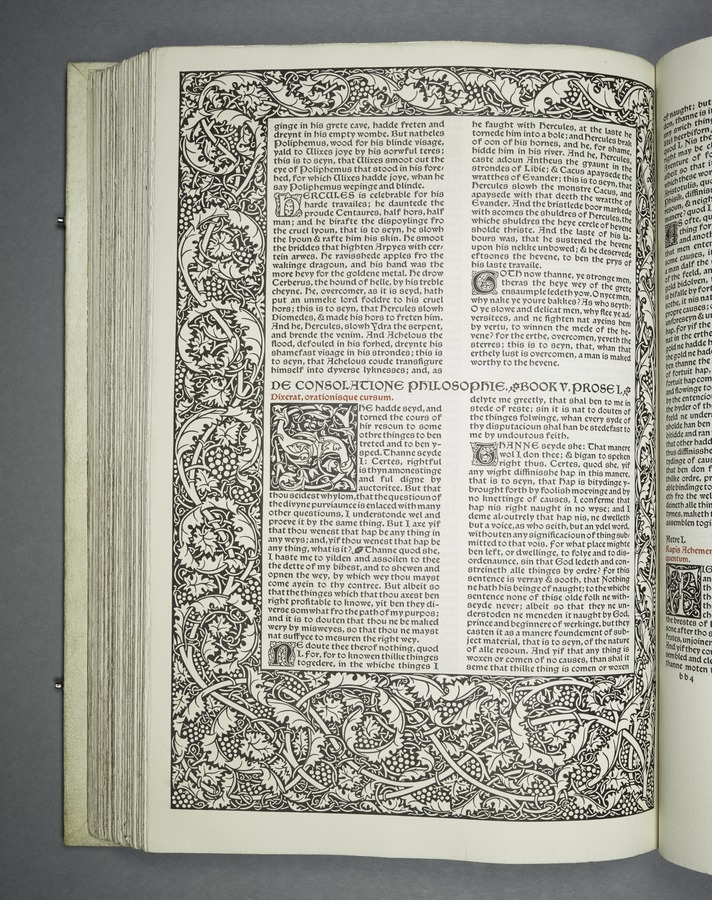 ginge in his grete cave, hadde freten and
dreynt in his empty wombe. But natheles
Poliphemus, wood for his blinde visage,
yald to Ulixes joye by his sorwful teres;
this is to seyn, that Ulixes smoot out the
eye of Poliphemus that stood in his fore-
hed, for which Ulixes hadde joye, whan he
say Poliphemus wepinge and blinde.
HERCULES is celebrable for his
harde travailes; he dauntede the
proude Centaures, half hors, half
man; and he birafte the dispoylinge fro
the cruel lyoun, that is to seyn, he slowh
the lyoun & rafte him his skin. He smoot
the briddes that highten Arpyes with cer-
tein arwes. He ravisshede apples fro the
wakinge dragoun, and his hand was the
more hevy for the goldene metal. He drow
Cerberus, the hound of helle, by his treble
cheyne. He, overcomer, as it is seyd, hath
put an unmeke lord foddre to his cruel
hors; this is to seyn, that Hercules slowh
Diomedes, & made his hors to freten him.
And he, Hercules, slowh Ydra the serpent,
and brende the venim. And Achelous the
flood, defouled in his forhed, dreynte his
shamefast visage in his strondes; this is
to seyn, that Achelous coude transfigure
himself into dyverse lyknesses; and, as
he faught with Hercules, at the laste he
tornede him into a bole; and Hercules brak
of oon of his hornes, and he, for shame,
hidde him in his river. And he, Hercules,
caste adoun Antheus the gyaunt in the
strondes of Libie; & Cacus apaysede the
wratthes of Evander; this is to seyn, that
Hercules slowh the monstre Cacus, and
apaysede with that deeth the wratthe of
Evander. And the bristlede boor markede
with scomes the shuldres of Hercules, the
whiche shuldres the heye cercle of hevene
sholde thriste. And the laste of his la-
bours was, that he sustened the hevene
upon his nekke unbowed; & he deservede
eftsones the hevene, to ben the prys of
his laste travaile.
GOTH now thanne, ye stronge men,
theras the heye wey of the grete
ensaumple ledeth yow. O nyce men,
why nake ye youre bakkes? As who seyth:
O ye slowe and delicat men, why flee ye ad-
versitees, and ne fighten nat ayeins hem
by vertu, to winnen the mede of the he-
vene? for the erthe, overcomen, yeveth the
sterres; this is to seyn, that, whan that
erthely lust is overcomen, a man is maked
worthy to the hevene.
DE CONSOLATIONE PHILOSOPHIE. BOOK V. PROSE I.
Dixerat, orationisque cursum.
SHE hadde seyd, and
torned the cours of
hir resoun to some
othre thinges to ben
treted and to ben y-
sped. Thanne seyde
I: Certes, rightful
is thyn amonestinge
and ful digne by
auctoritee. But that
thou seidest whylom, that the questioun of
the divyne purviaunce is enlaced with many
other questiouns, I understonde wel and
proeve it by the same thing. But I axe yif
that thou wenest that hap be any thing in
any weys; and, yif thou wenest that hap be
any thing, what is it? Thanne quod she,
I haste me to yilden and assoilen to thee
the dette of my bihest, and to shewen and
opnen the wey, by which wey thou mayst
come ayein to thy contree. But albeit so
that the thinges which that thou axest ben
right profitable to knowe, yit ben they di-
verse somwhat fro the path of my purpos;
and it is to douten that thou ne be maked
wery by misweyes, so that thou ne mayst
nat suffyce to mesuren the right wey.
NE doute thee therof nothing, quod
I. For, for to knowen thilke thinges
togedere, in the whiche thinges I
delyte me greetly, that shal ben to me in
stede of reste; sin it is nat to douten of
the thinges folwinge, whan every syde of
thy disputacioun shal han be stedfast to
me by undoutous feith.
THANNE seyde she: That manere
wol I don thee; & bigan to speken
right thus. Certes, quod she, yif
any wight diffinisshe hap in this manere,
that is to seyn, that Hap is bitydinge y-
brought forth by foolish moevinge and by
no knettinge of causes, I conferme that
hap nis right naught in no wyse; and I
deme al-outrely that hap nis, ne dwelleth
but a voice, as who seith, but an ydel word,
withouten any significacioun of thing sub-
mitted to that vois. For what place mighte
ben left, or dwellinge, to folye and to dis-
ordenaunce, sin that God ledeth and con-
streineth alle thinges by ordre? For this
sentence is verray & sooth, that Nothing
ne hath his beinge of naught; to the whiche
sentence none of thise olde folk ne with-
seyde never; albeit so that they ne un-
derstoden ne meneden it naught by God,
prince and beginnere of werkinge, but they
casten it as a manere foundement of sub-
ject material, that is to seyn, of the nature
of alle resoun. And yif that any thing is
woxen or comen of no causes, than shal it
seme that thilke thing is comen or woxen
Metre I.
Rupis Achemen
bb4